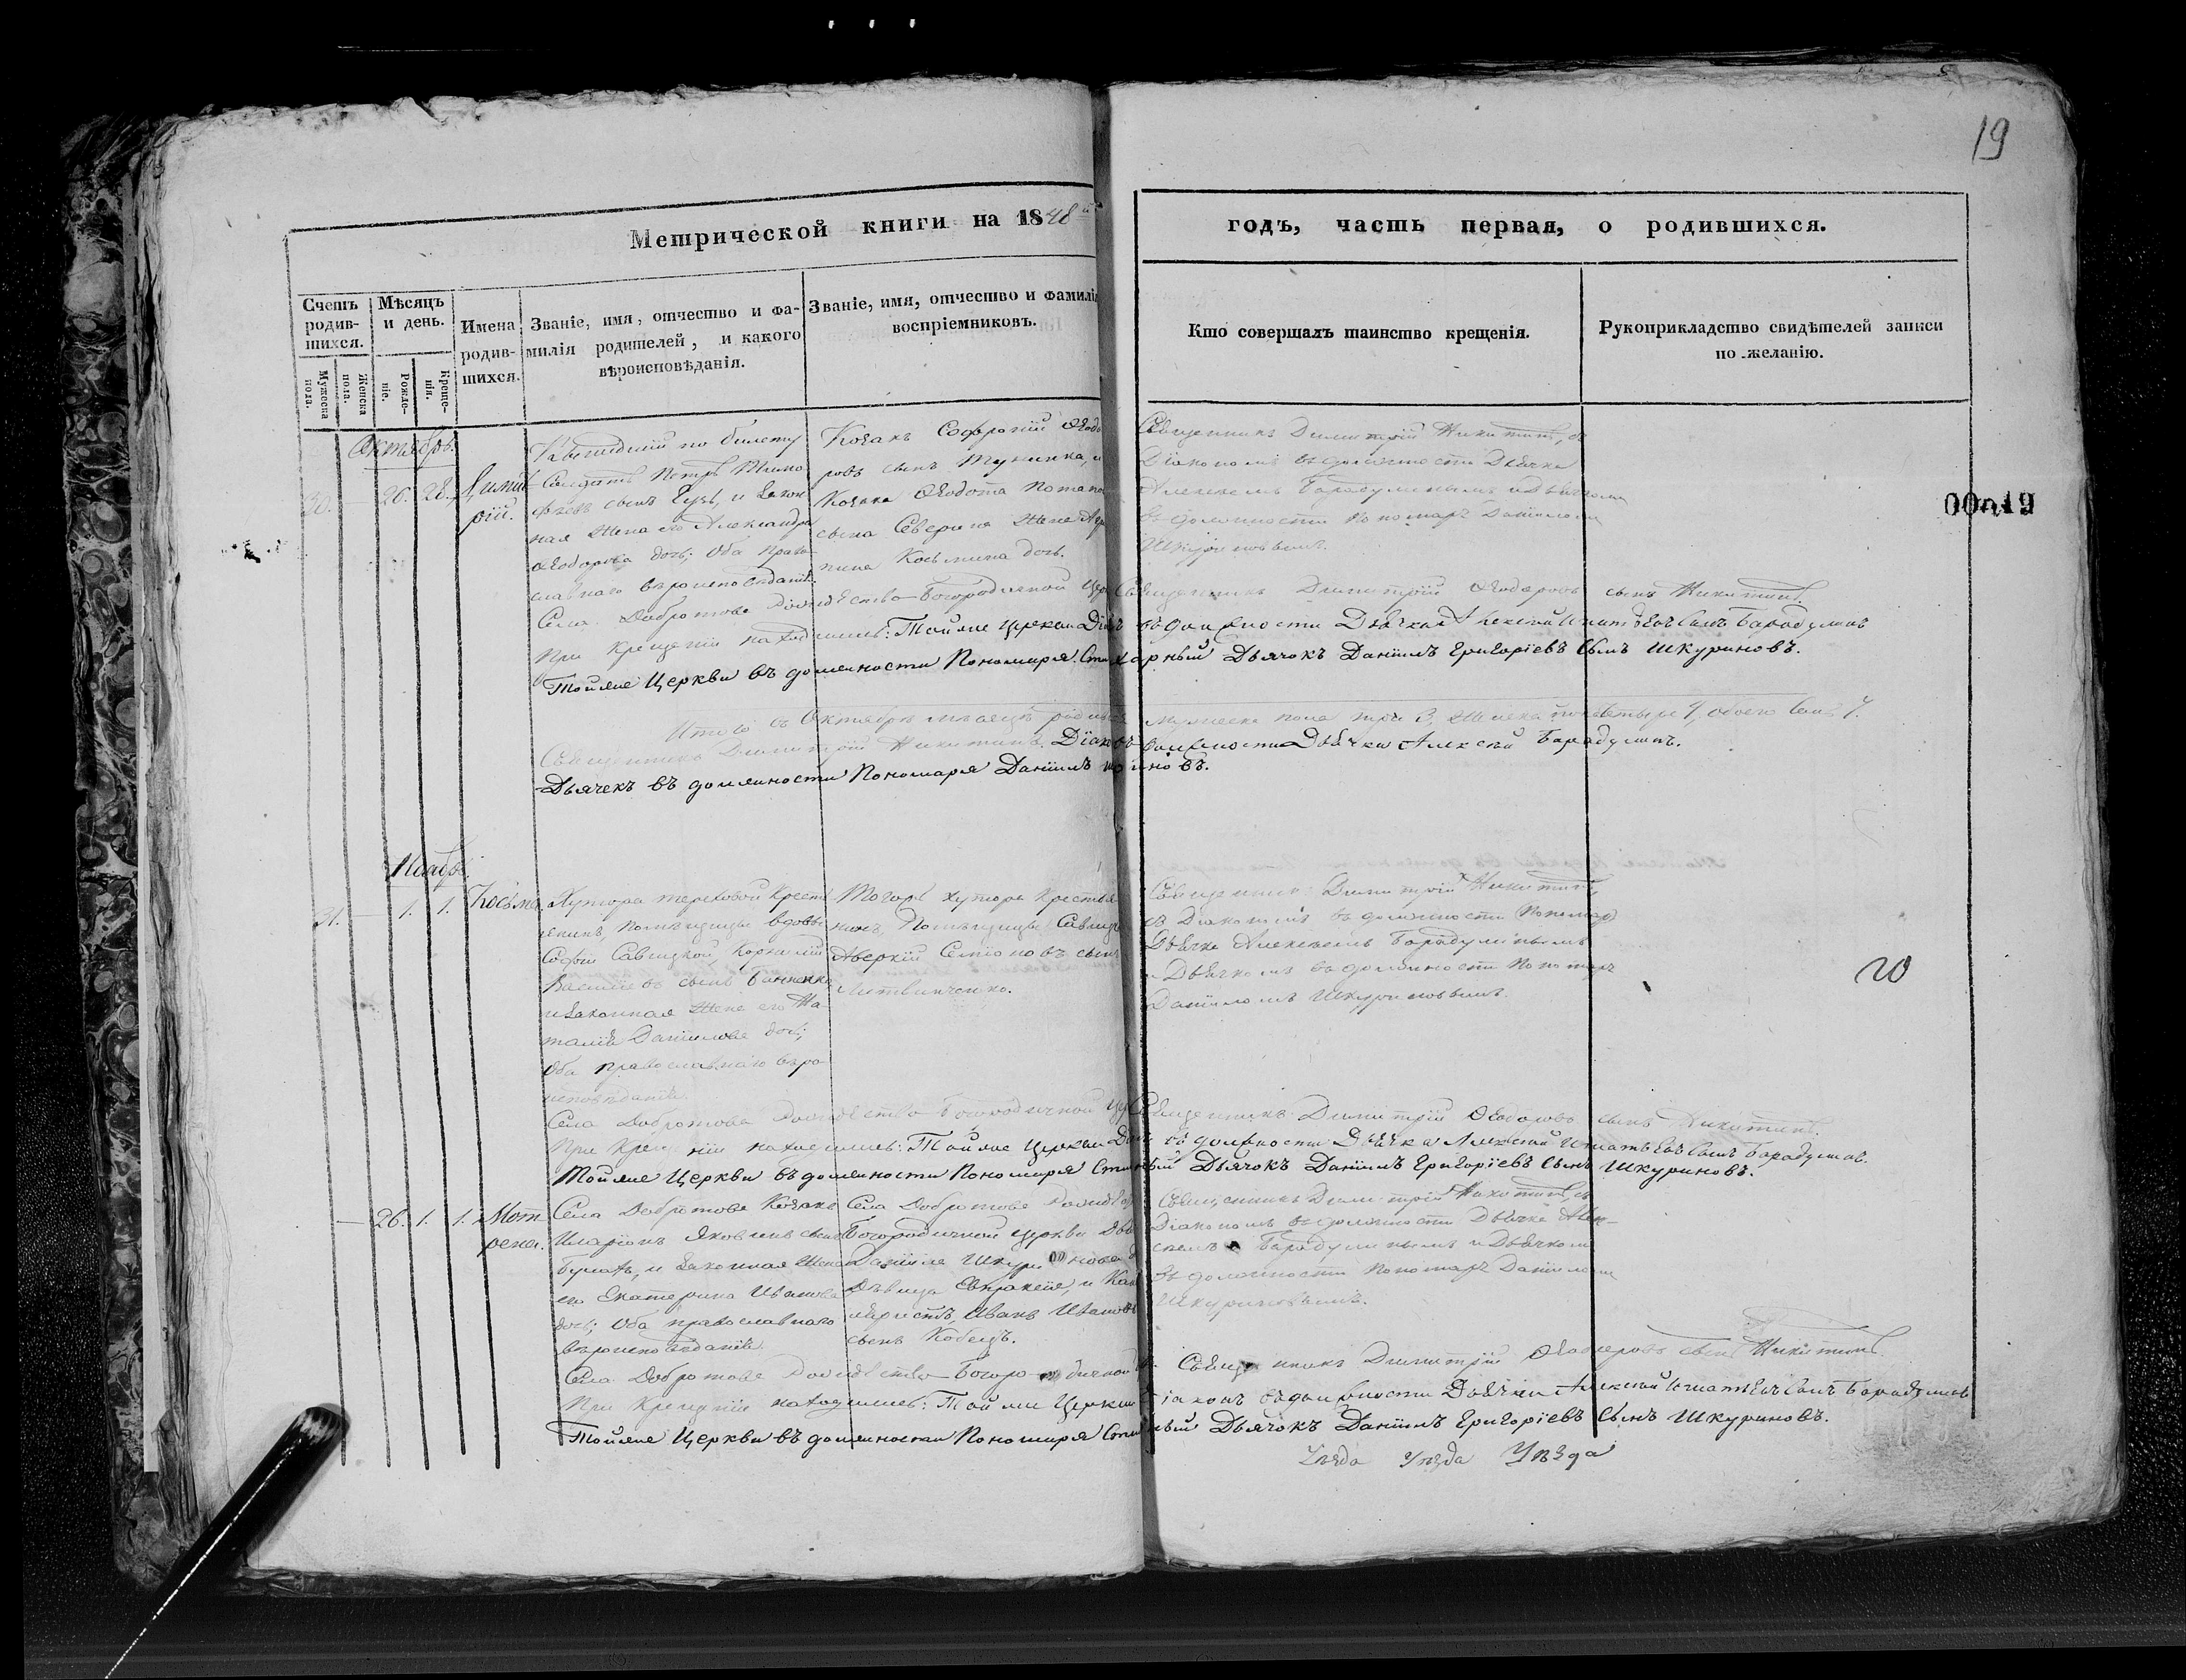 19
Метрической книги на 1848й
годъ, часть первая, о родившихся.
Счетъ родив-шихся.
Мужеска пола.
Женска пола.
Мѣсяцъ и день.
Рожде-ніе.
Креще-нія.
Имена родив-шихся.
Званіе, имя, отчество и фа-
милія родителей, и какого
вѣроисповѣданія.
Званіе, имя, отчество и фамилія
воспріемниковъ.
Кто совершалъ таинство крещенія.
Рукоприкладство свидѣтелей записи
по желанію.
Октябрь.
30. — 26. 28. Дими-
трій.
по билету
Солдатъ Петръ Тимо-
фѣевъ сынъ Гузь, и закон-
ная жена его Александра
Ѳеодорова дочь; оба право-
славнаго вѣроисповѣданія.
Козакъ Софроній Ѳеодо
ровъ сынъ и
Козака Ѳеодота Потапо
сына Северина жена
Косьмина дочь.
Священникъ Димитрій Никитинъ, съ
Діакономъ въ должности Дьячка
Алексѣемъ Барадулинымъ и Дьячкомъ
въ должности Пономаря Даніиломъ
Шкуриновымъ.
00019
Села Добротова Рождество-Богородичной Цер Священникъ Димитрій Ѳеодоровъ сынъ Никитинъ.
При крещеніи находились: Тойже Церкви Діак въ должности Дьячка Алексѣй Игнатьевъ сынъ Барадулинъ
Тойже Церкви въ должности Пономаря Стихарный Дьячокъ Даніилъ Григоріевъ Сынъ Шкуриновъ.
Итого въ Октябрѣ мѣсяцѣ родилось мужеска пола три 3, женска четыре 4, обоего семь 7.
Священникъ Димитрій Никитинъ. Діаконъ въ должности Дьячка Алексѣй Барадулинъ.
Дьячекъ въ должности Пономаря Даніилъ
Ноябрь.
31. — 1. 1. Косьма.
Хутора Тереховой Крестья
нинъ, Помѣщицы вдовы
Софіи Савицкой, Корнилій
Василіевъ сынъ
и законная жена его На-
талія Даніилова дочь;
оба православнаго вѣро-
исповѣданія.
Тогожъ хутора Крестья
нинъ, Помѣщицы Савицк
Аверкій Семіоновъ сынъ
Литвинченко.
Священникъ Димитрій Никитинъ,
съ Діакономъ въ должности
Дьячка Алексѣемъ Барадулинымъ
и Дьячкомъ въ должности Пономаря
Даніиломъ Шкуриновымъ.
20
Села Добротова Рождество-Богородичной Цер Священникъ Димитрій Ѳеодоровъ сынъ Никитинъ.
При крещеніи находились: Тойже Церкви Діак въ должности Дьячка Алексѣй Игнатьевъ сынъ Барадулинъ.
Тойже Церкви въ должности Пономаря Сти ный Дьячокъ Даніилъ Григоріевъ Сынъ Шкуриновъ.
— 26. 1. 1. Мот-
рена.
Села Добротова Козакъ
Иларіонъ Яковлевъ сынъ
и законная жена
его Екатерина Иванова
дочь; оба православнаго
вѣроисповѣданія.
Села Добротова Рождество
Богородичной церкви Дья
Даніила Шкуринова д
Дѣвица Евпраксія, и Кан
целяристъ Иванъ Ивановъ
сынъ Кобецъ.
Священникъ Димитрій Никитинъ, съ
Діакономъ въ должности Дьячка Алек-
сѣемъ Барадулинымъ и Дьячкомъ
въ должности Пономаря Даніиломъ
Шкуриновымъ.
Села Добротова Рождество-Богородичной Священникъ Димитрій Ѳеодоровъ сынъ Никитинъ.
При крещеніи находились: Тойже Церкви Діаконъ въ должности Дьячка Алексѣй Игнатьевъ сынъ Барадулинъ
Тойже Церкви въ должности Пономаря Сти ный Дьячокъ Даніилъ Григоріевъ Сынъ Шкуриновъ.
Уѣзда Уѣзда Уѣзда